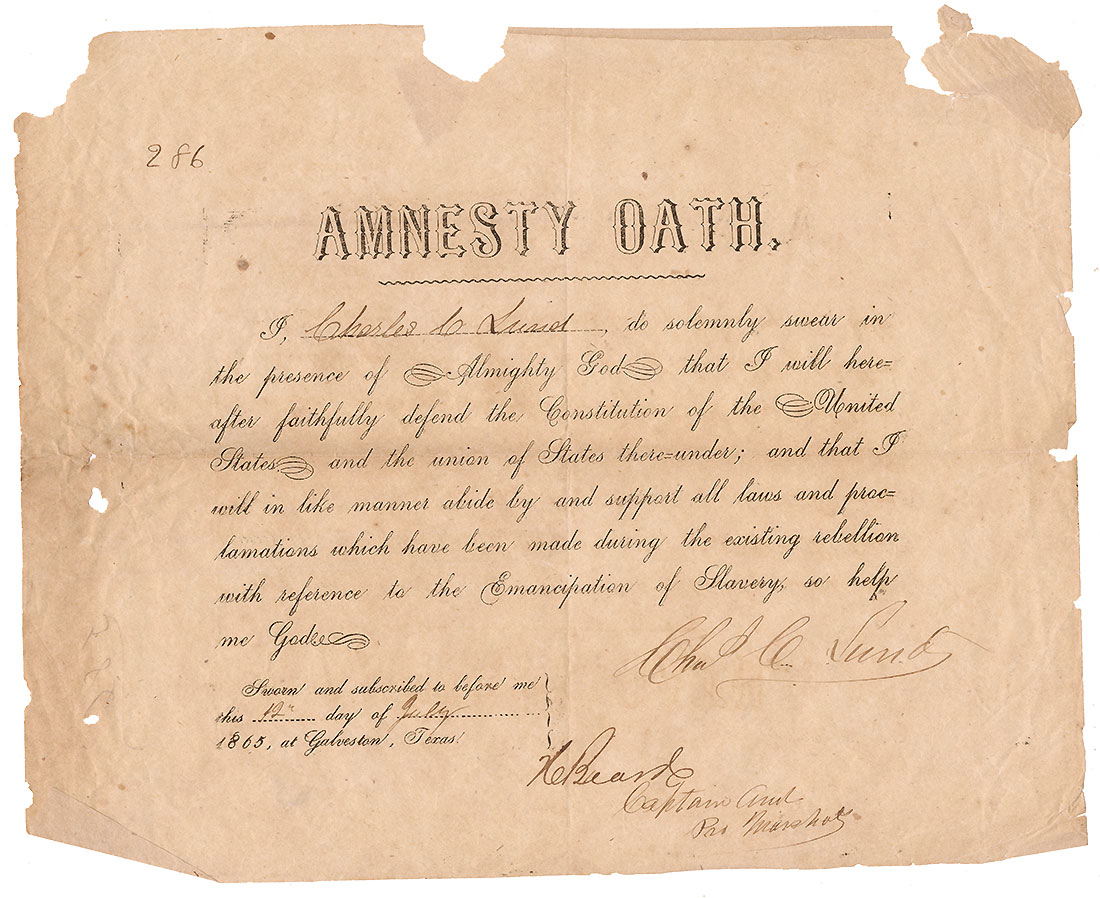 286
AMNESTY OATH.
I, Charles C Lund, do solemnly swear in
the presence of Almighty God that I will here=
after faithfully defend the Constitution of the United
States and the union of States there=under; and that I
will in like manner abide by and support all laws and proc=
lamations which have been made during the existing rebellion
with reference to the Emancipation of Slavery, so help
me God.
Chas C. Lund
Sworn and subscribed to before me
this 12th day of July
1865, at Galveston, Texas.
Beard
Captain and
Pro Marshal